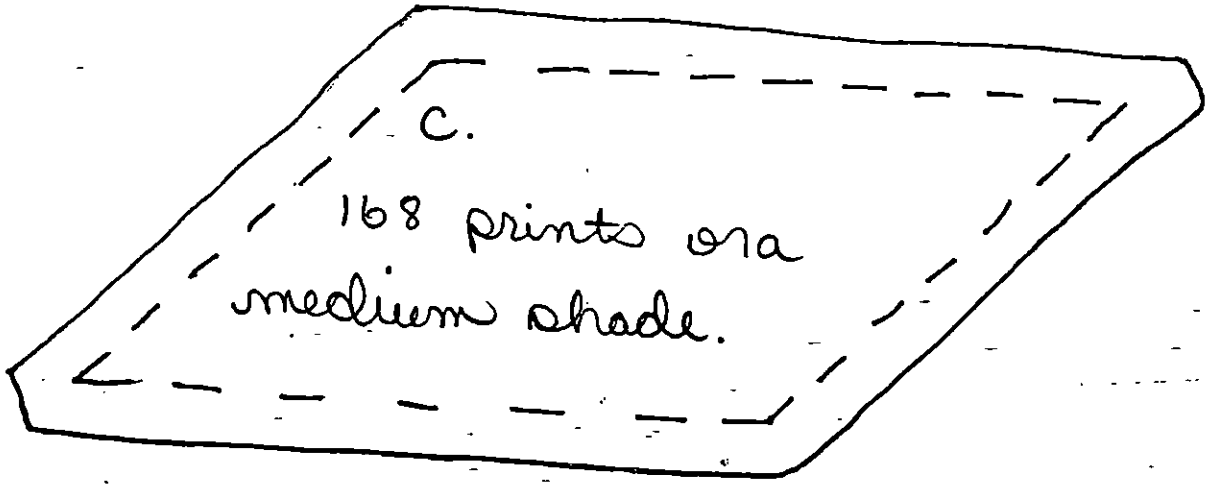 C.
168 prints or a
medium shade.